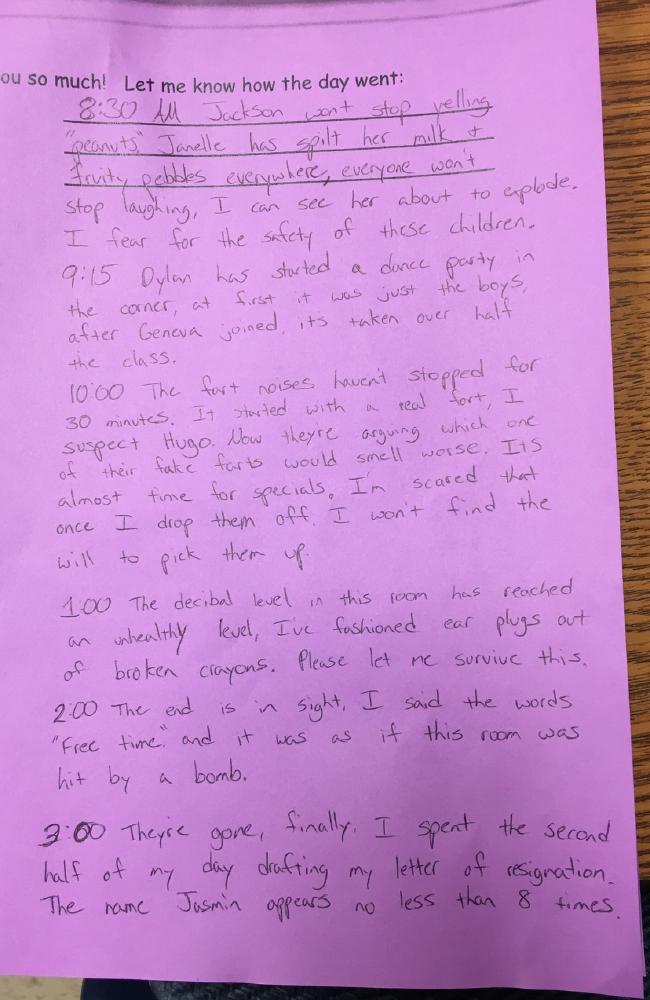 ou so much! Let me know how the day went:
8:30 AM Jackson wont stop yelling
"peanuts" Janelle has spilt her milk +
fruity pebbles everywhere, everyone won't
stop laughing, I can see her about to explode.
I fear for the safety of these children.
9:15 Dylan has started a dance party in
the corner, at first it was just the boys,
after Geneva joined, its taken over half
the class.
10:00 The fart noises haven't stopped for
30 minutes. It started with a real fart, I
suspect Hugo. Now they're arguing which one
of their fake farts would smell worse. Its
almost time for specials, I'm scared that
once I drop them off, I won't find the
will to pick them up.
1:00 The decibal level in this room has reached
an unhealthy level, I've fashioned ear plugs out
of broken crayons. Please let me survive this.
2:00 The end is in sight, I said the words
"Free time." and it was as if this room was
hit by a bomb.
3:00 They're gone, finally. I spent the second
half of my day drafting my letter of resignation.
The name Jasmin appears no less than 8 times.